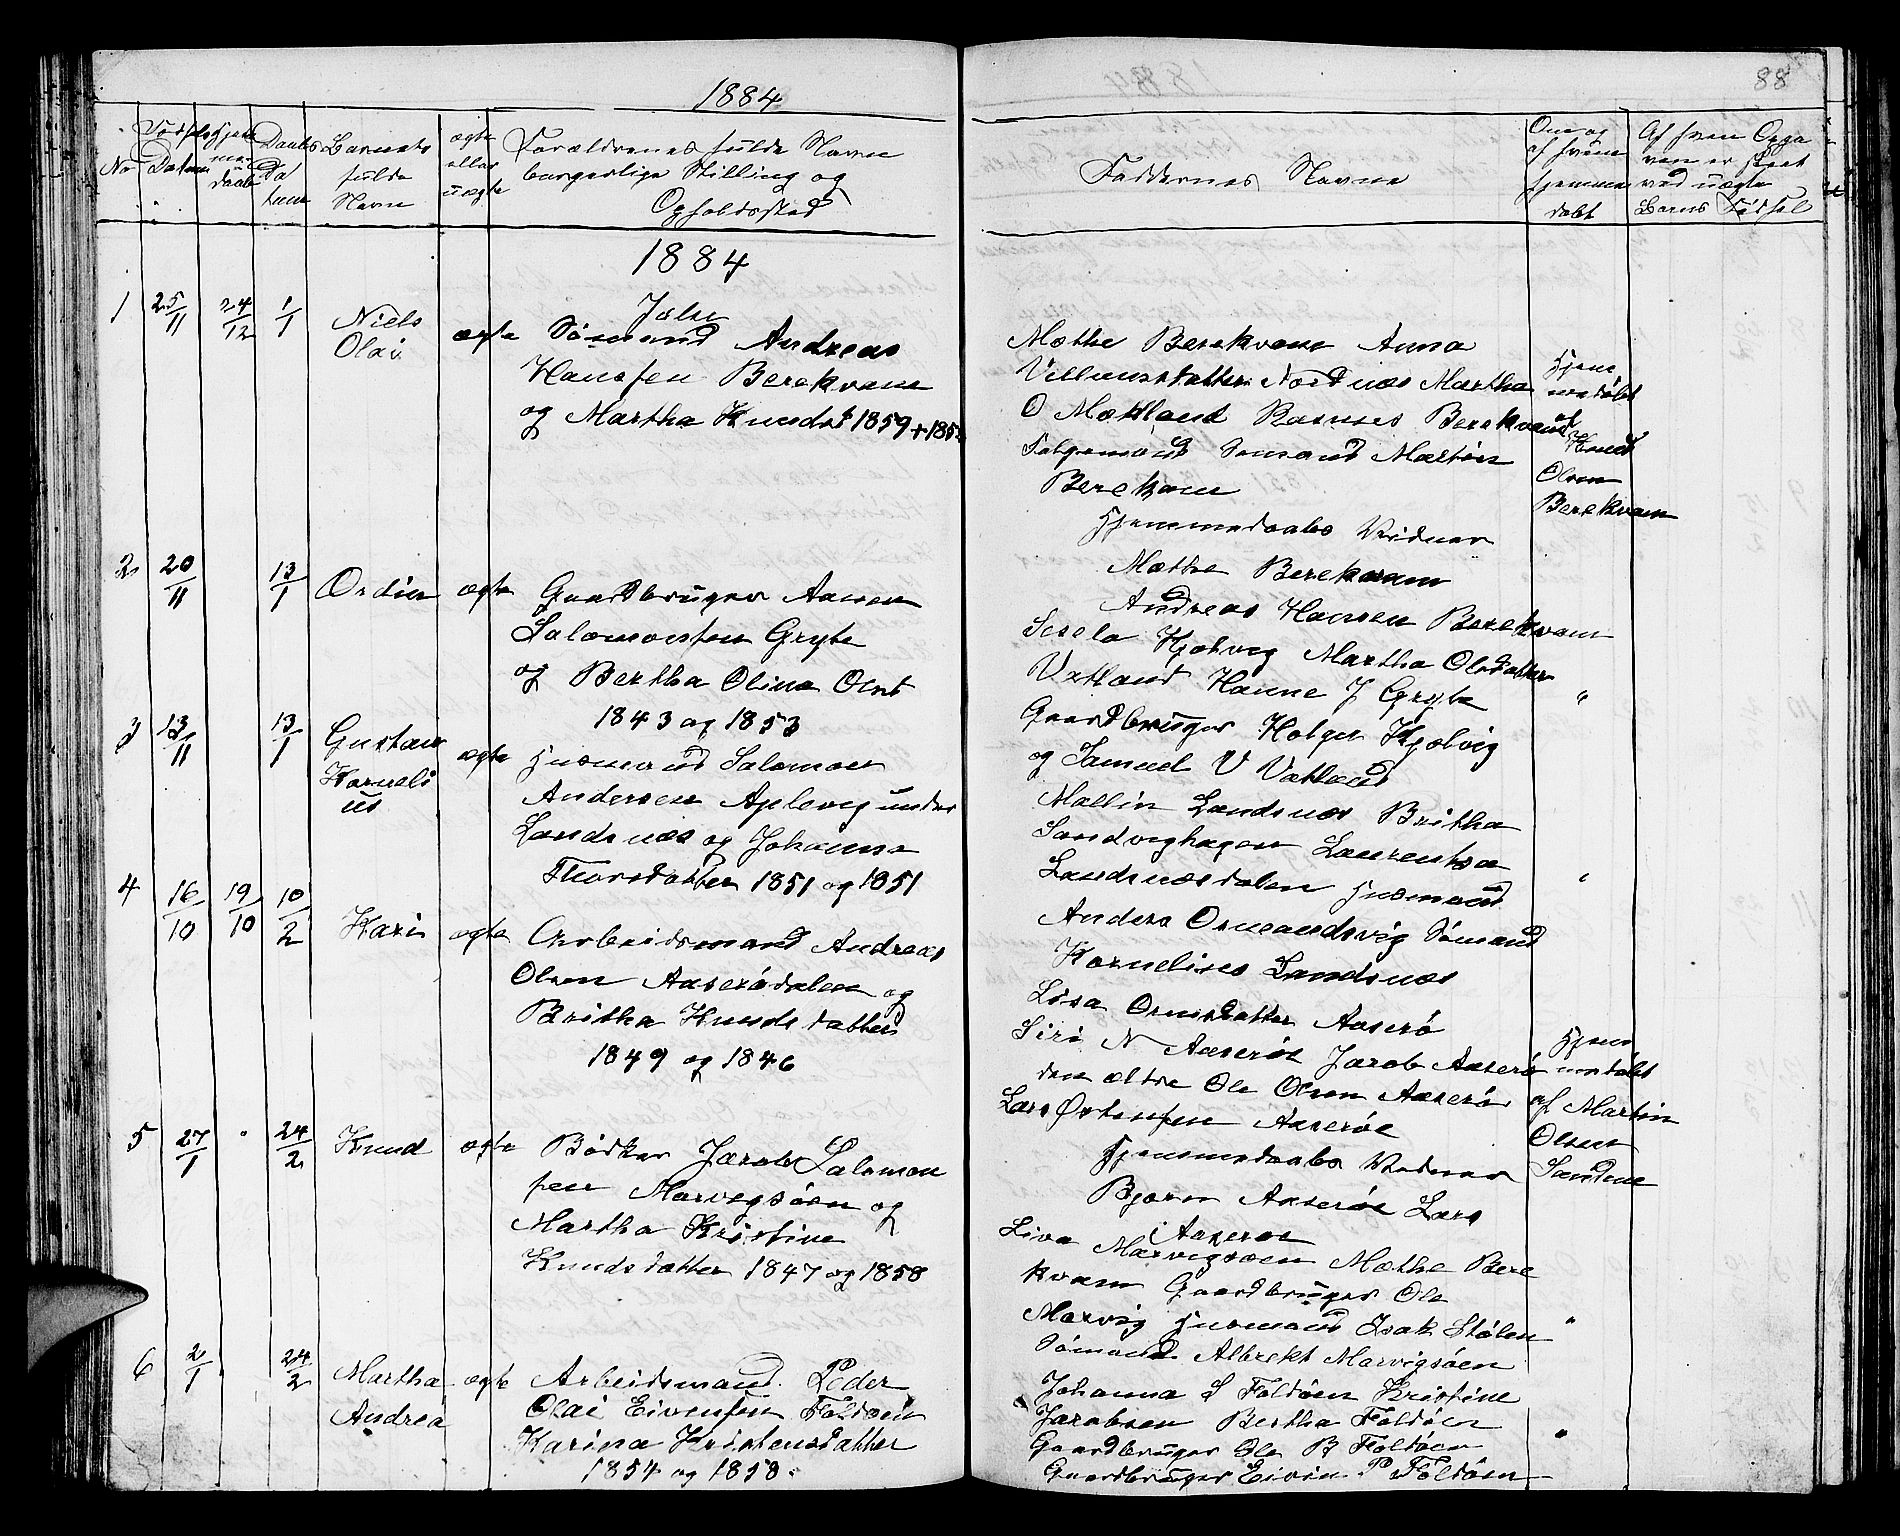 1884
88
No
Fødsels Datum
Hjemmedaab
Daabs Datum
Barnets fulde Navn
ægte eller uægte
Forældrenes fulde Navn
borgerlige Stilling og
Opholdssted
Faddernes Navne
Om og af hvem hjemmedøbt
Af hvem Opgaven er skeet ved uægte Barns Fødsel
1884
1 25/11 24/12 1/1 Niels Olai ægte
Jelse
Sømand Andreas
Hansen Berekvam
og Martha Knudsd 1859 +
Methe Berekvam Anna
Villumsdatter Nordnæs Martha
O Mæhland Rasmus Berekvam
Sømand Martin
Berekvam
Hjemmedaabs Vidner
Methe Berekvam
Andreas Hansen Berekvam
Hjemmedøbt
af
Knud
Olsen
Berekvam
2 20/11 13/1 Ordin ægte
Gaardbruger Aamen
Salomonsen Gryte
og Bertha Olina Olsd
1843 og 1853
Sesela Kjølvig Martha Olsdatter
Vatland Hanne J Gryte
Gaardbruger Holger Kjølvig
og Samuel V Vatland
"
3 13/11 13/1 Gustav Kornelius ægte
Husmand Salamon
Andersen Aplevig under
Landsnæs og Johanna
Thorsdatter 1851 og 1851
Mallin Landsnæs Britha
Sandvighagen Laurentsa
Landsnæsdalen Husmand
Anders Ormandsvig Sømand
Kornelius Landsnæs
"
4 16/10 19/10 10/2 Kari ægte
Arbeidsmand Andreas
Olsen Aaserødalen og
Britha Knudsdatter
1849 og 1846
Lisa Ormsdatter Aaserø
Siri N Aaserøe Jacob Aaserø
den ældre Ole Olsen Aaserø
Lars Østensen Aaserøe
Hjemmedaabs Vidner
Bjørn Aaserøe Lars
Aaserøe
Hjemmedøbt
af Martin
Olsen
Sandene
5 27/1 24/2 Knud ægte
Bødker Jacob Salomonsen
Marvigsøen og
Martha Kristine
Knudsdatter 1847 og 1858
Liva Marvigsøen Methe Berekvam
Gaardbruger Ole
Marvig Husmand Isak Stølen
Sømand Albrekt Marvigsøen
"
6 2/1 24/2 Martha Andrea ægte
Arbeidsmand Peder
Olai Eivensen Foldøen
Karina Kristensdatter
1854 og 1858
Johanna S Foldøen Kristine
Jacobsen Bertha Foldøen
Gaardbruger Ole B Foldøen
Gaardbruger Eivin P Foldøen
"